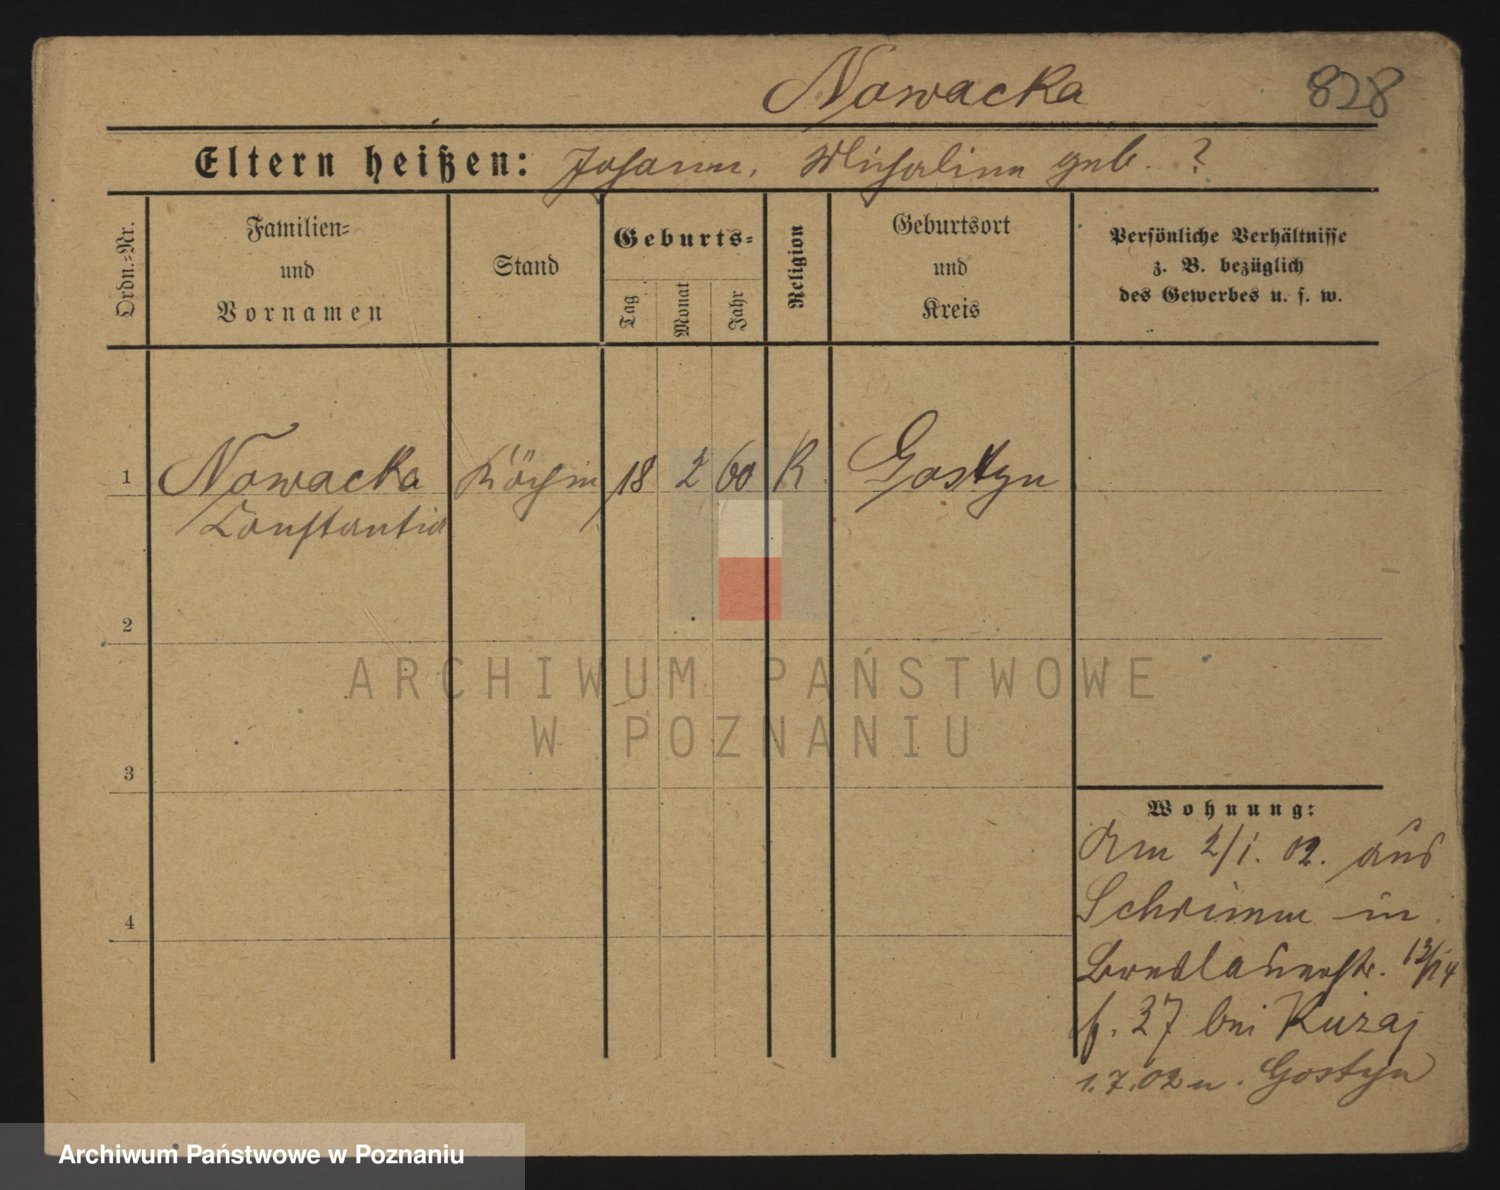 Nowacka 828
Eltern heißen: Johann, Michalina geb. ?
Ordn.-Nr.
Familien-
und
Vornamen
Stand
Geburts-
Tag
Monat
Jahr
Religion
Geburtsort
und
Kreis
Persönliche Verhältnisse
z. B. bezüglich
des Gewerbes u. s. w.
1 Nowacka Köchin 18 2 60 K Gostyn
Constantia
2
3
4
Wohnung:
Am 2/1. 02. aus
Schrimm in
Breslauerstr. 13/14
f. 37 bei Kuzaj
1.7.02 n. Gostyn
ARCHIWUM PAŃSTWOWE
W POZNANIU
Archiwum Państwowe w Poznaniu